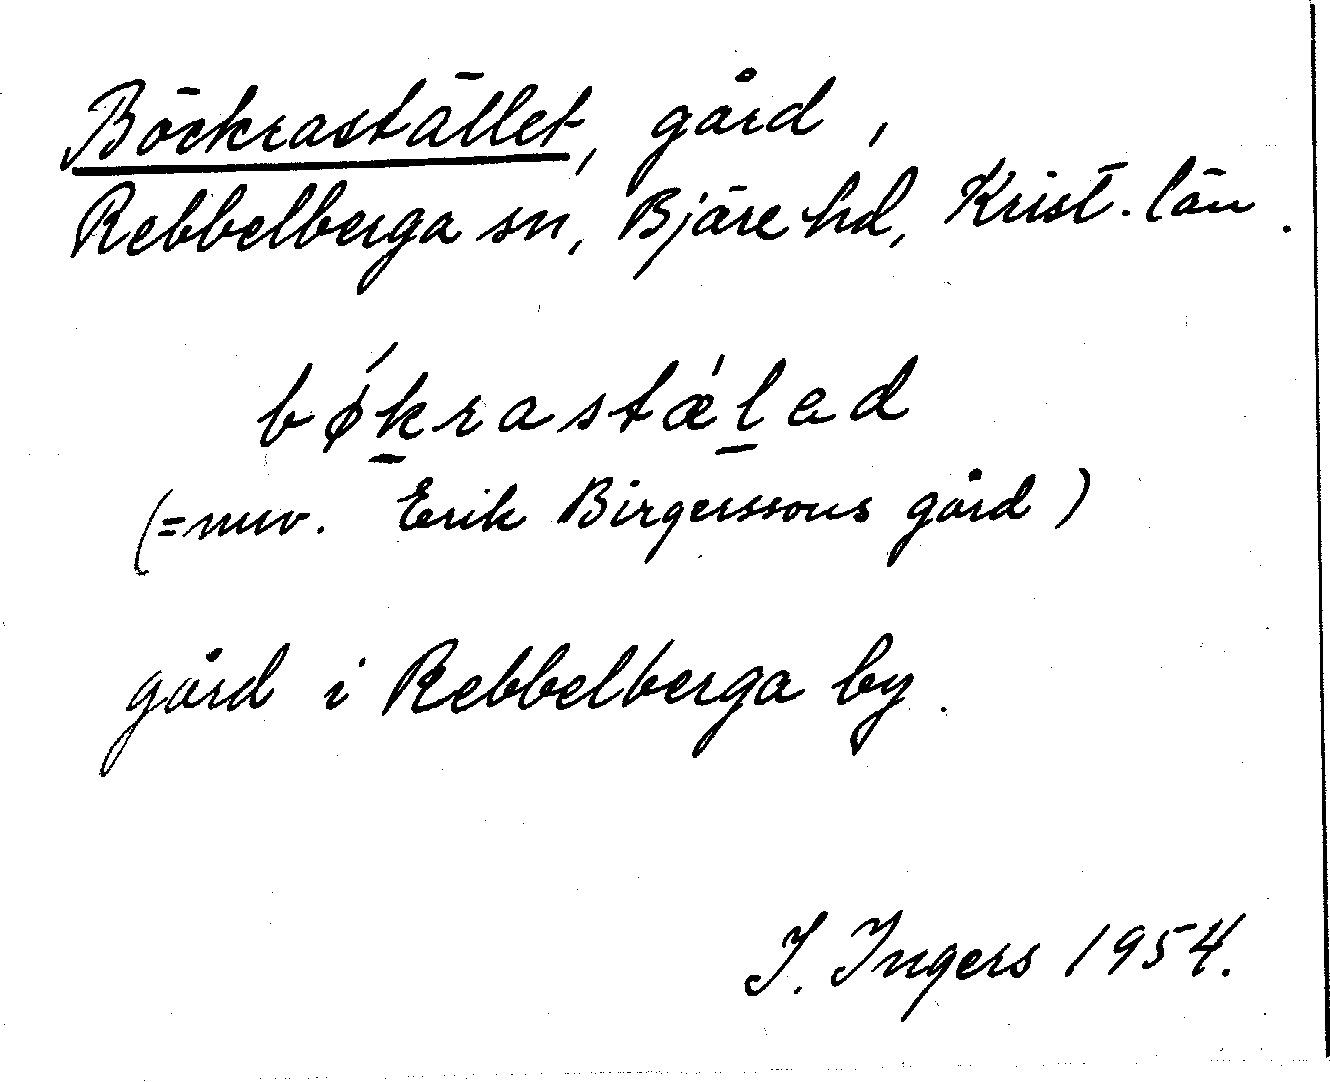 Böckrastället, gård,
Rebbelberga sn, Bjäre hd, Krist. län.
bǿk̲rastǽl̲ad
(= nuv. Erik Birgerssons gård)
gård i Rebbelberga by.
I. Ingers 1954.